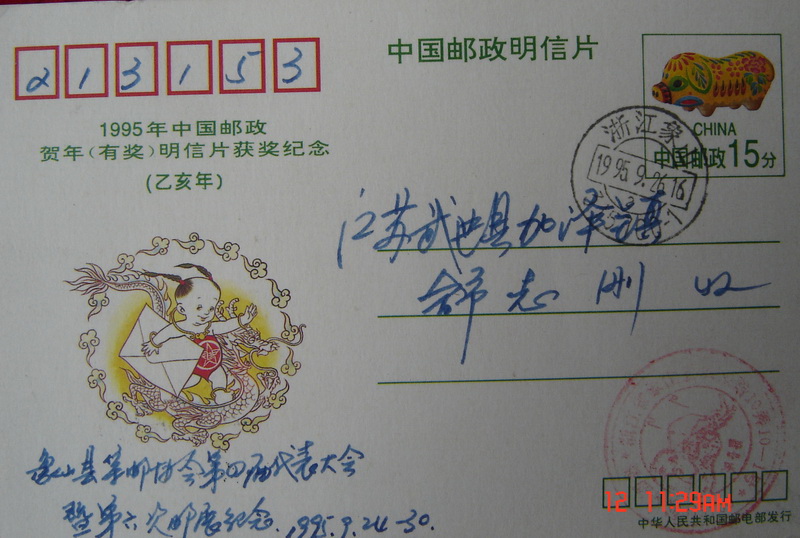 213153
中国邮政明信片
CHINA
中国邮政15分
浙江象
1995.9.26.16
1995年中国邮政
贺年(有奖)明信片获奖纪念
(乙亥年)
江苏武进县加泽镇
舒志刚 收
象山县集邮协会第四届代表大会
暨第六次邮展纪念.1995.9.24-30.
12 11:29AM
中华人民共和国邮电部发行